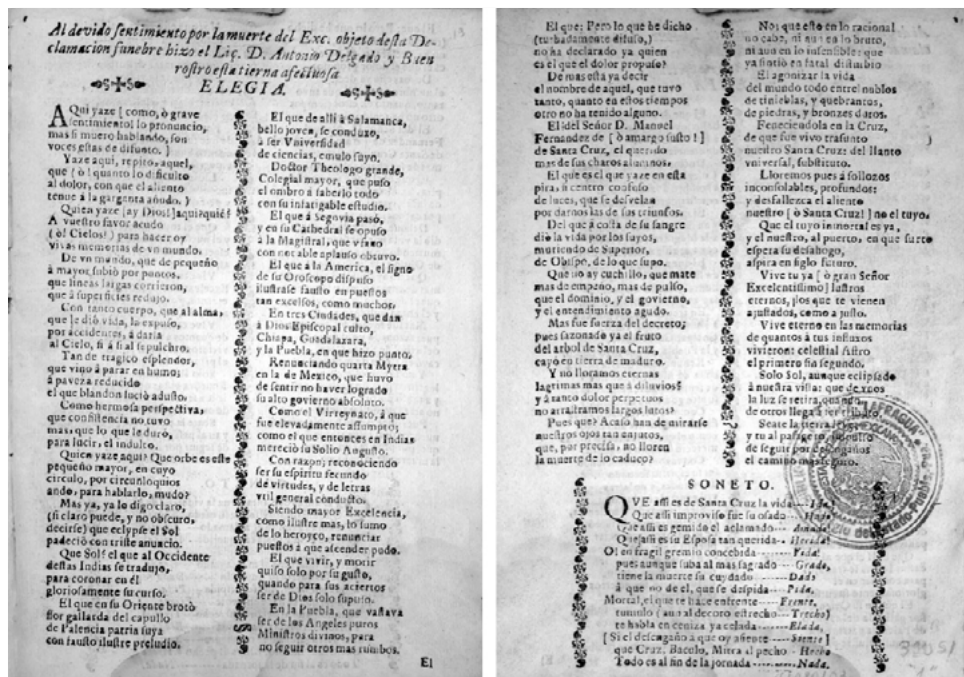 Al devido sentimiento por la muerte del Exc. objeto desta De-
clamacion funebre hizo el Liç. D. Antonio Delgado y Buen
rostro esta tierna afectuosa
ELEGIA.
AQui yaze [ como, ò grave
sentimiento! lo pronuncio,
mas si muero hablando, son
voces estas de difunto. )
Yaze aqui, repito, aquel,
que ( ò! quanto lo dificulto
al dolor, con que el aliento
tenue à la garganta añudo. )
Quien yaze [ay Dios!] aqui?quiẽ?
A vuestro favor acudo
( ò! Cielos! ) para hacer oy
vivas memorias de vn mundo.
De vn mundo, que de pequeño
à mayor subiò por puntos,
que lineas largas corrieron,
que à superficies redujo.
Con tanto cuerpo, que al alma,
que le diò vida, la expuso,
por accidentes, à darla
al Cielo, si à si al sepulchro.
Tan de tragico esplendor,
que vino à parar en humo;
à paveza reducido
el que blandon luciò adusto.
Como hermosa perspectiva,
que consistencia no tuvo
mas, que lo que le durò,
para lucir, el indulto.
Quien yaze aqui? Que orbe es este
pequeño mayor, en cuyo
circulo, por circunloquios
ando, para hablarlo, mudo?
Mas ya, ya lo digo claro,
(si claro puede, y no obscuro,
decirse) que eclypse el Sol
padeciò con triste anuncio.
Que Sol? el que al Occidente
destas Indias se tradujo,
para coronar en èl
gloriosamente su curso.
El que en su Oriente brotò
flor gallarda del capullo
de Palencia patria suya
con fausto ilustre preludio.
El que de alli à Salamanca,
bello joven, se condujo,
à ser Vniversidad
de ciencias, emulo suyo.
Doctor Theologo grande,
Colegial mayor, que puso
el ombro à saberlo todo
con su infatigable estudio.
El que à Segovia pasò,
y en su Cathedral se opuso
à la Magistral, que vfano
con notable aplauso obtuvo.
El que à la America, el signo
de su Oroscopo dispuso
ilustrase fausto en puestos
tan excelsos, como muchos.
En tres Ciudades, que dan
à Dios Episcopal culto,
Chiapa, Guadalaxara,
y la Puebla, en que hizo punto.
Renunciando quarta Mytra
en la de Mexico, que huvo
de sentir no haver logrado
su alto govierno absoluto.
Como el Virreynato, à que
fue elevadamente assumpto;
como el que entonces en Indias
mereciò su Solio Augusto.
Con razon; reconociendo
ser su espiritu fecundo
de virtudes, y de letras
vtil general conducto.
Siendo mayor Excelencia,
como ilustre mas, lo sumo
de lo heroyco, renunciar
puestos à que ascender pudo.
El que vivir, y morir
quiso solo por su gusto,
quando para sus aciertos
ser de Dios solo supuso.
En la Puebla, que vastava
ser de los Angeles puros
Ministros divinos, para
no seguir otros mas rumbos.
El
El que: Pero lo que he dicho
(turbadamente difuso,)
no ha declarado ya quien
es el que el dolor propuso?
De mas està ya decir
el nombre de aquel, que tuvo
tanto, quanto en estos tiempos
otro no ha tenido alguno.
El del Señor D. Manuel
Fernandez de [ ò amargo susto ! ]
de Santa Cruz, el querido
mas de sus charos alumnos.
El que es el que yaze en esta
pira, si centro confuso
de luces, que se desvelan
por darnos las de sus triunfos.
Del que à costa de su sangre
diò la vida por los suyos,
muriendo de Superior,
de Obispo, de lo que supo.
Que no ay cuchillo, que mate
mas de empeño, mas de pulso,
que el dominio, y el govierno,
y el entendimiento agudo.
Mas fue fuerza del decreto;
pues sazonado ya el fruto
del arbol de Santa Cruz,
cayò en tierra de maduro.
Y no lloramos eternas
lagrimas mas que à diluvios?
y à tanto dolor perpetuos
no arrastramos largos lutos?
Pues que? Acaso han de mirarse
nuestros ojos tan enjutos,
que, por precisa, no lloren
la muerte de lo caduco?
No; que esto en lo racional
no cabe, ni aun en lo bruto,
ni aun en lo insensible: que
ya sintiò en fatal disturbio
El agonizar la vida
del mundo todo entre nublos
de tinieblas, y quebrantos,
de piedras, y bronzes duros.
Feneciendola en la Cruz,
de que fue vivo trasunto
nuestro Santa Cruz: del llanto
vniversal, substituto.
Lloremos pues à sollozos
inconsolables, profundos:
y desfallezca el aliento
nuestro [ ò Santa Cruz! ] no el tuyo.
Que el tuyo inmortal es ya,
y el nuestro, al puerto, en que surto
espera su desahogo,
aspira en siglo futuro.
Vive tu ya [ ò gran Señor
Excelentissimo] lustros
eternos, pos que te vienen
ajustados, como a justo.
Vive eterno en las memorias
de quantos à tus influxos
vivieron: celestial Astro
el primero sin segundo.
Solo Sol, aunque eclipsado
à nuestra vista: que de vnos
la luz se retira, quando
de otros llega à ser tributo.
Seate la tierra
y tu al pasagero,
de seguir por desengaños
el camino mas seguro.
SONETO.
QVE assi es de Santa Cruz la vida---Ida!
Que assi improviso fue su osado---Hado!
Que assi es gemido el aclamado---Amado!
Que assi es su Esposa tan querida---Herida!
O! en fragil gremio concebida---Vida!
pues aunque suba al mas sagrado---Grado,
tiene la muerte su cuydado---Dado
à que no de el, que se despida---Pida.
Mortal, el que te hace enfrente---Frente,
tumulo ( aun al decoro estrecho---Trecho)
te habla en ceniza ya celada---Elada,
[ Si el desengaño à que oy asiente---Siente ]
que Cruz, Baculo, Mitra al pecho---Hecho
Todo es al fin de la jornada---Nada.